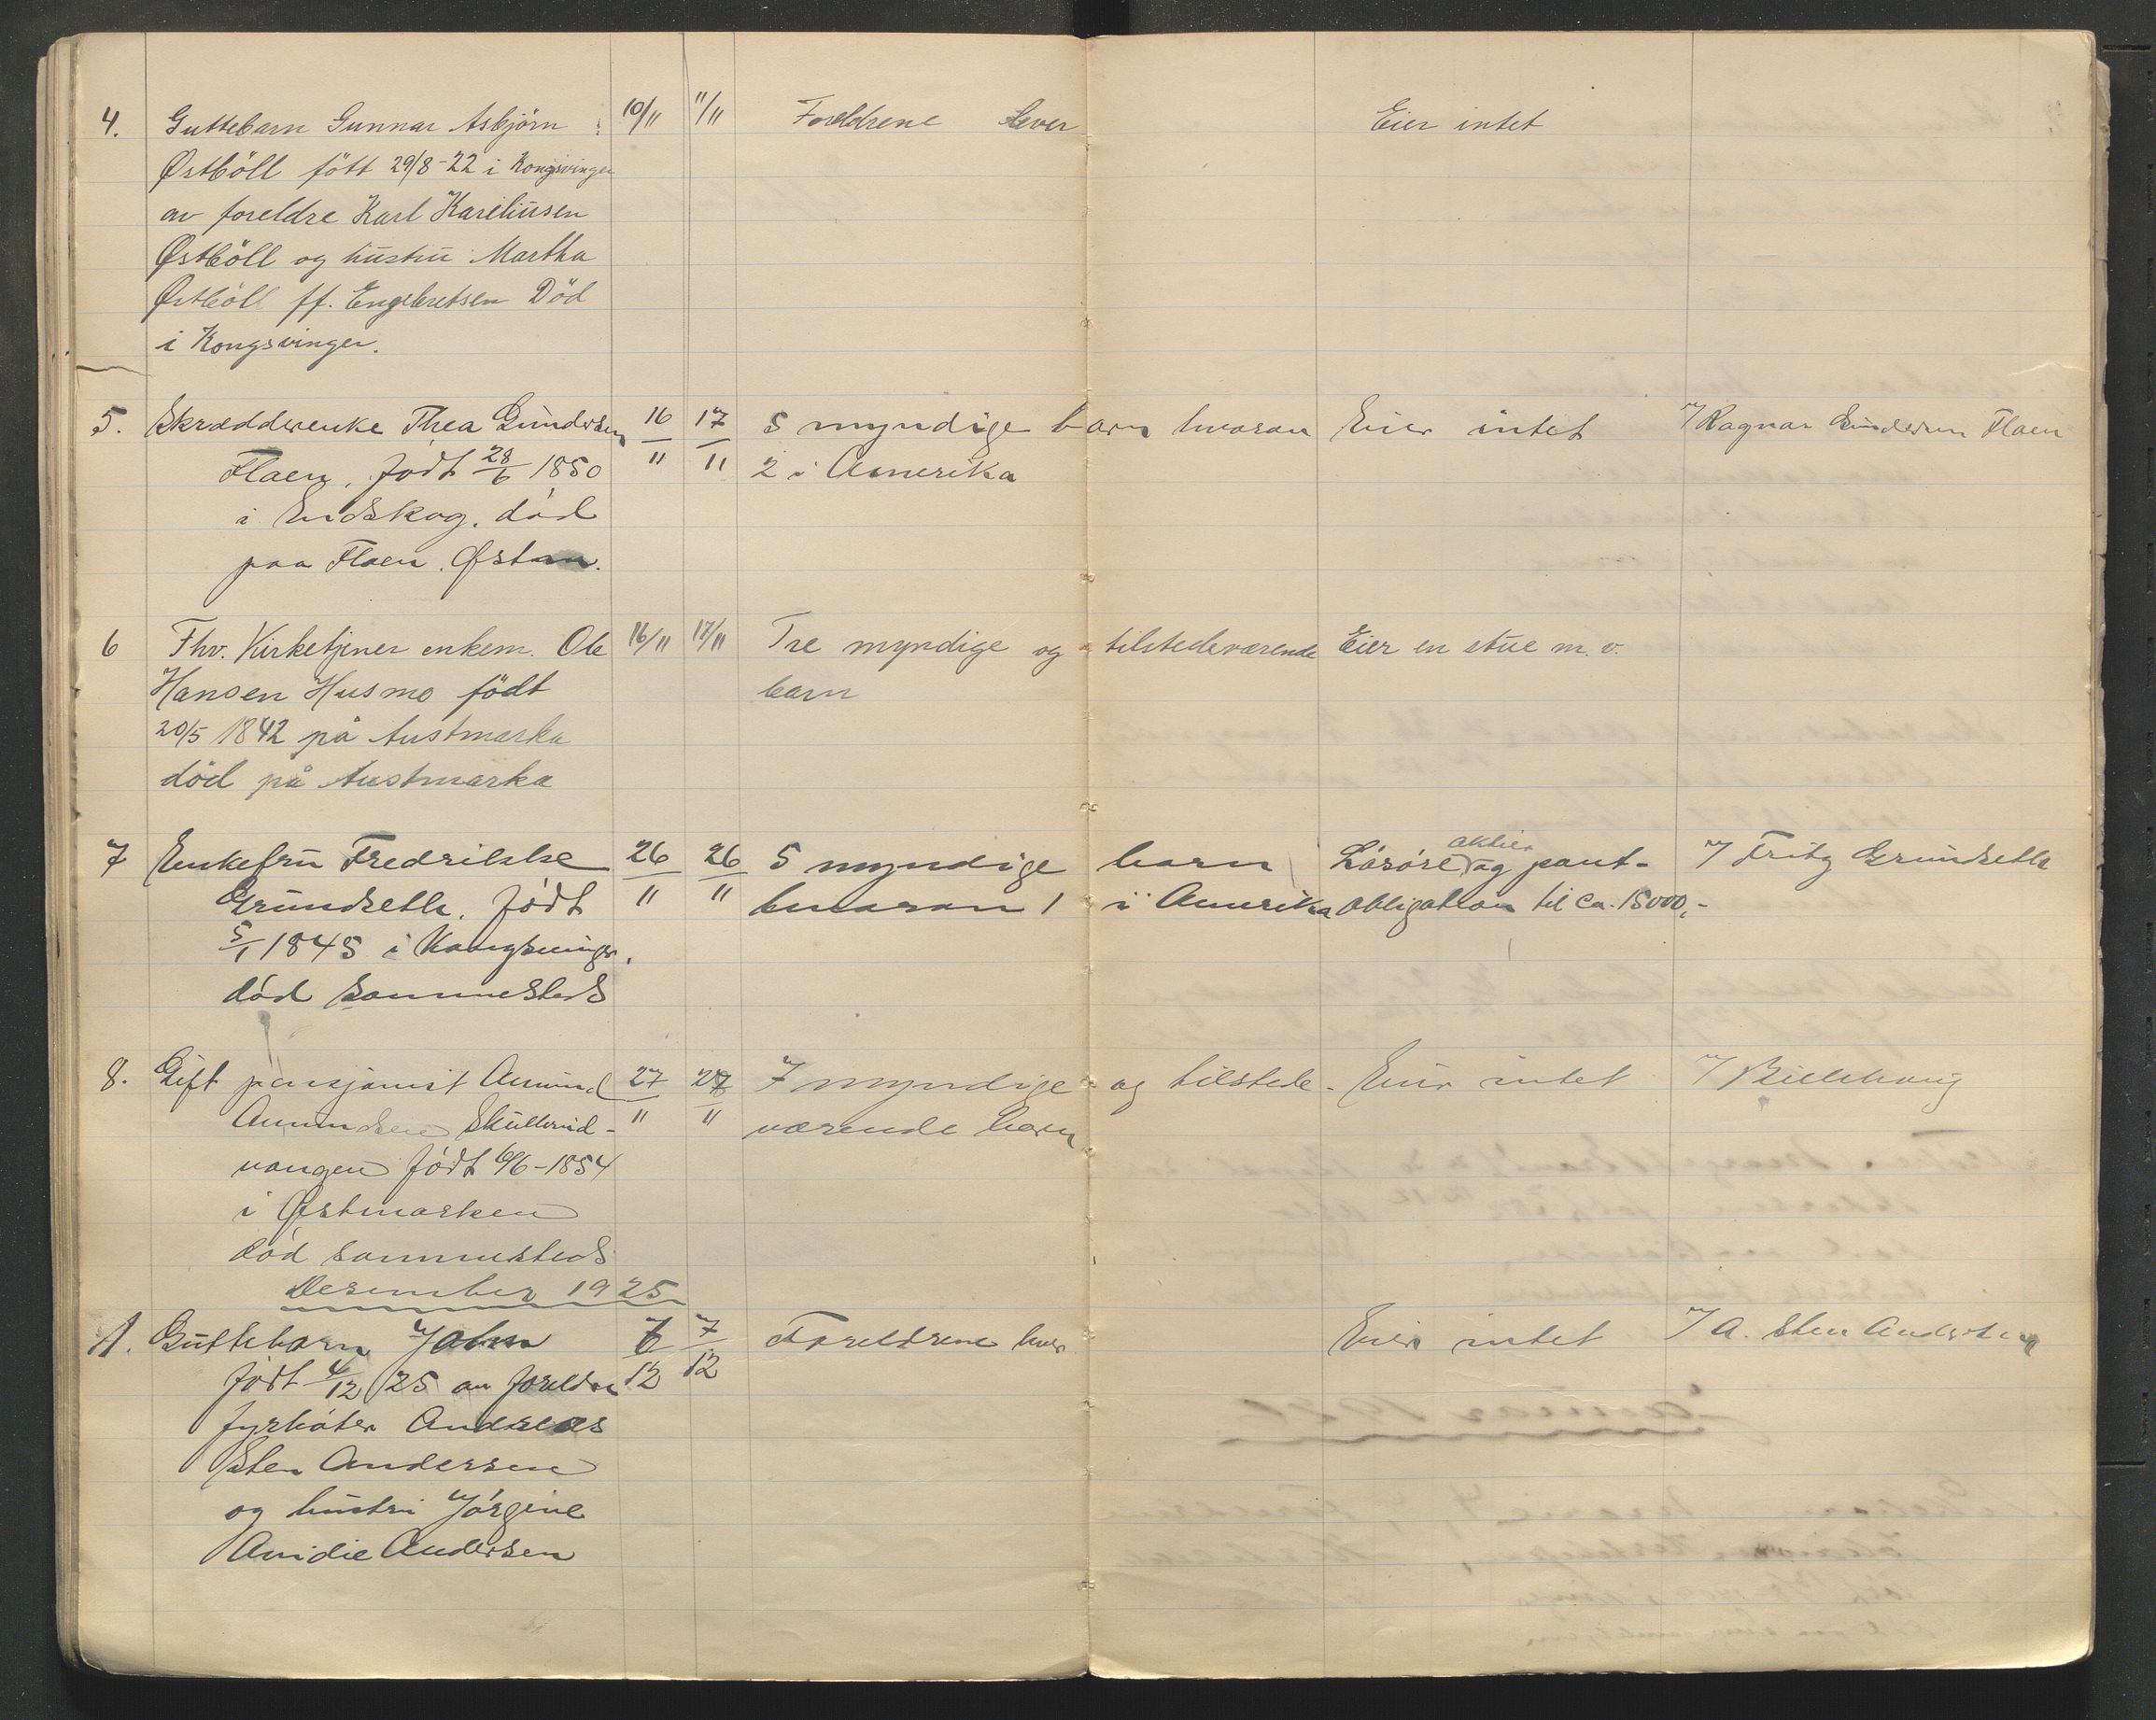 4. Guttebarn Gunnar Asbjörn 10/11 11/11 Foreldrene Lever Eier intet
Østböll fött 29/8-22 i Kongsvinger
av foreldre Karl Kareliusen
Østböll og hustru Martha
Østböll ff. Engebretsen Död
i Kongsvinger.
5. Skrædderenke Thea Gundersen 16/11 17/11 5 myndige barn hvoran Eier intet 7 Ragnar Gundersen Flaen
Flaen. Født 28/6 1850 2 i Amerika
i Eidskog. död
paa Flaen. Østm.
6 Fhv. Kirketjener enkem. Ole 16/11 17/11 Tre myndige og tilstedeværende Eier en stue m.v.
Hansen Husmo födt barn
20/5 1842 på Austmarka
död på Austmarka
7 Enkefru Fredrikke 26/11 26/11 5 myndige barn Lösöre aktier og pant- 7 Fritz Grundseth
Grundseth. Født hvoran 1 i Amerika obligation til ca. 15000,-
5/1 1845 i Kongsvinger.
död sammesteds
8. Gift pensjonist Amund 27/11 27/11 7 myndige og tilstede- Eier intet 7 Billehaug
Amundsen Skullerud- værende barn
vangen født 6/6-1854
i Østmarken
död sammesteds
Desember 1925
1. Guttebarn John 6/12 7/12 Foreldrene lever Eier intet 7 A. Sten Andersen
født 4/12 25 av foreldre
fyrböter Andreas
Sten Andersen
og hustru Jörgine
Amdie Andersen